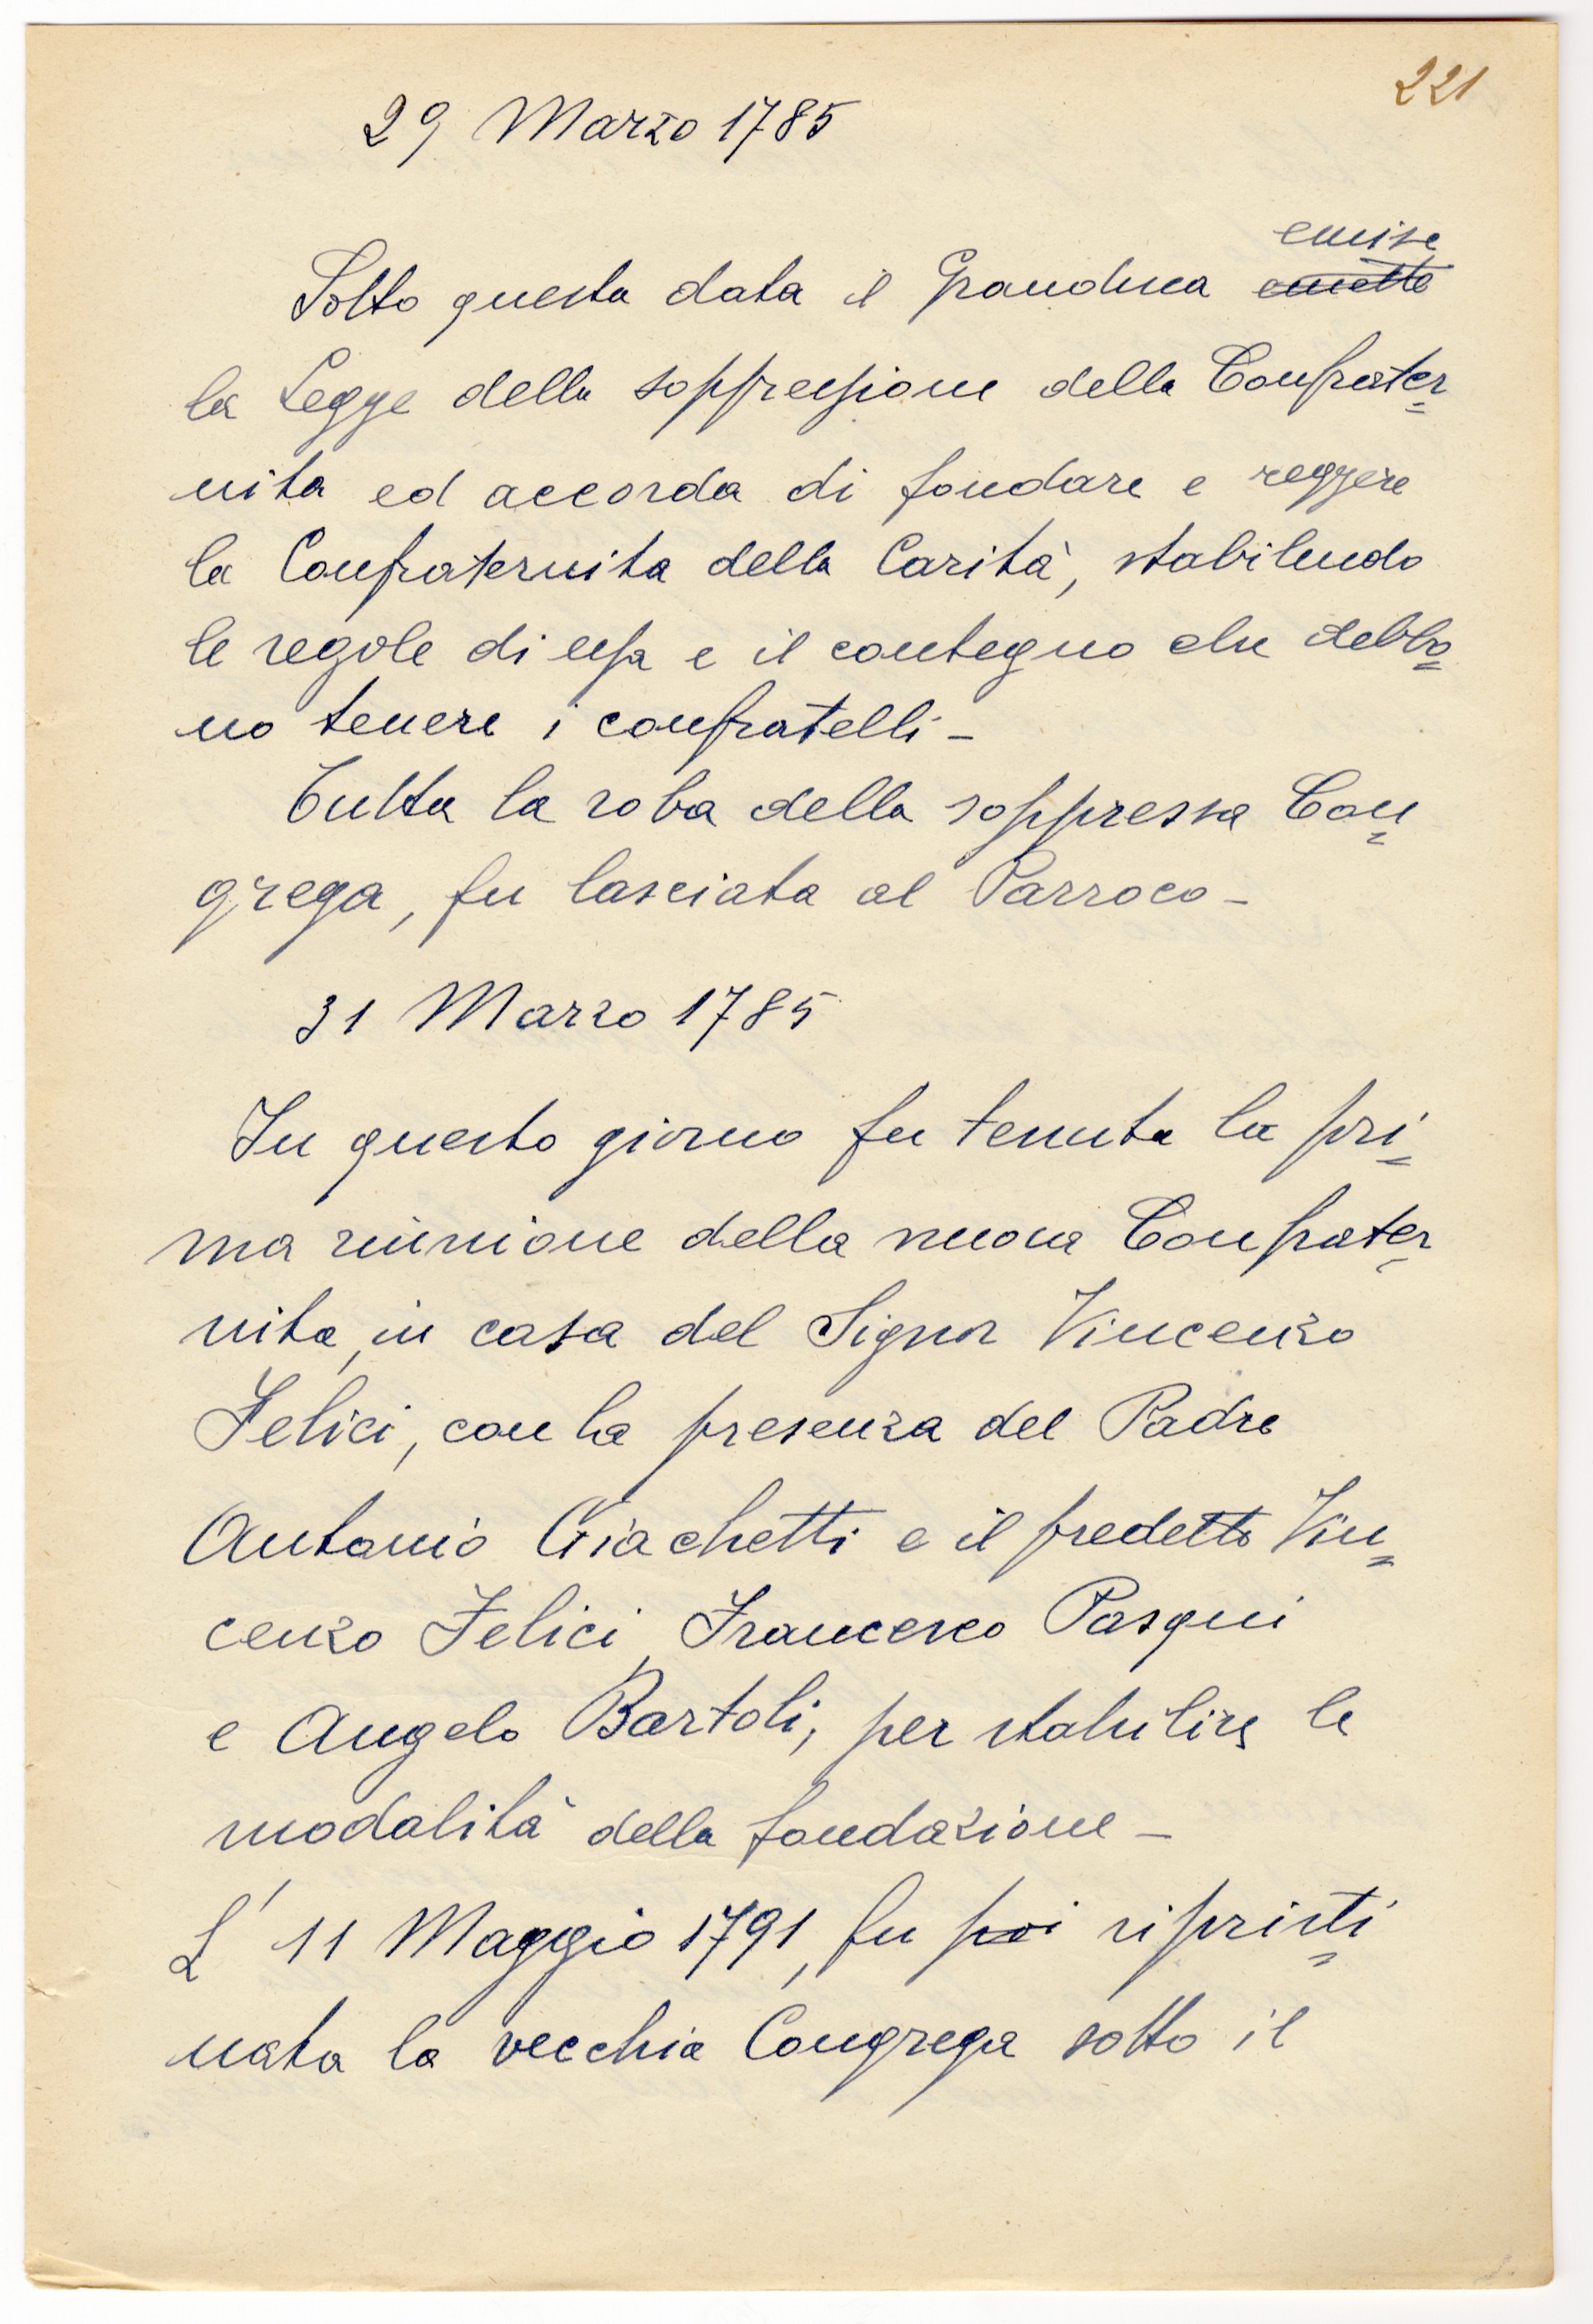 221
29 Marzo 1785
emise
Sotto questa data il Granduca ~~emette~~
la Legge della soppressione della Confrater=
nita ed accorda di fondare e reggere
la Confraternita della Carità, stabilendo
le regole di essa e il contegno che debbo=
no tenere i confratelli -
Tutta la roba della soppressa Con=
grega, fu lasciata al Parroco -
31 Marzo 1785
In questo giorno fu tenuta la pri=
ma riunione della nuova Confrater=
nita, in casa del Signor Vincenzo
Felici, con la presenza del Padre
Antonio Giachetti e il predetto Vin=
cenzo Felici, Francesco Pasqui
e Angelo Bartoli, per stabilire le
modalità della fondazione -
L' 11 Maggio 1791, fu poi ripristi=
nata la vecchia Congrega sotto il